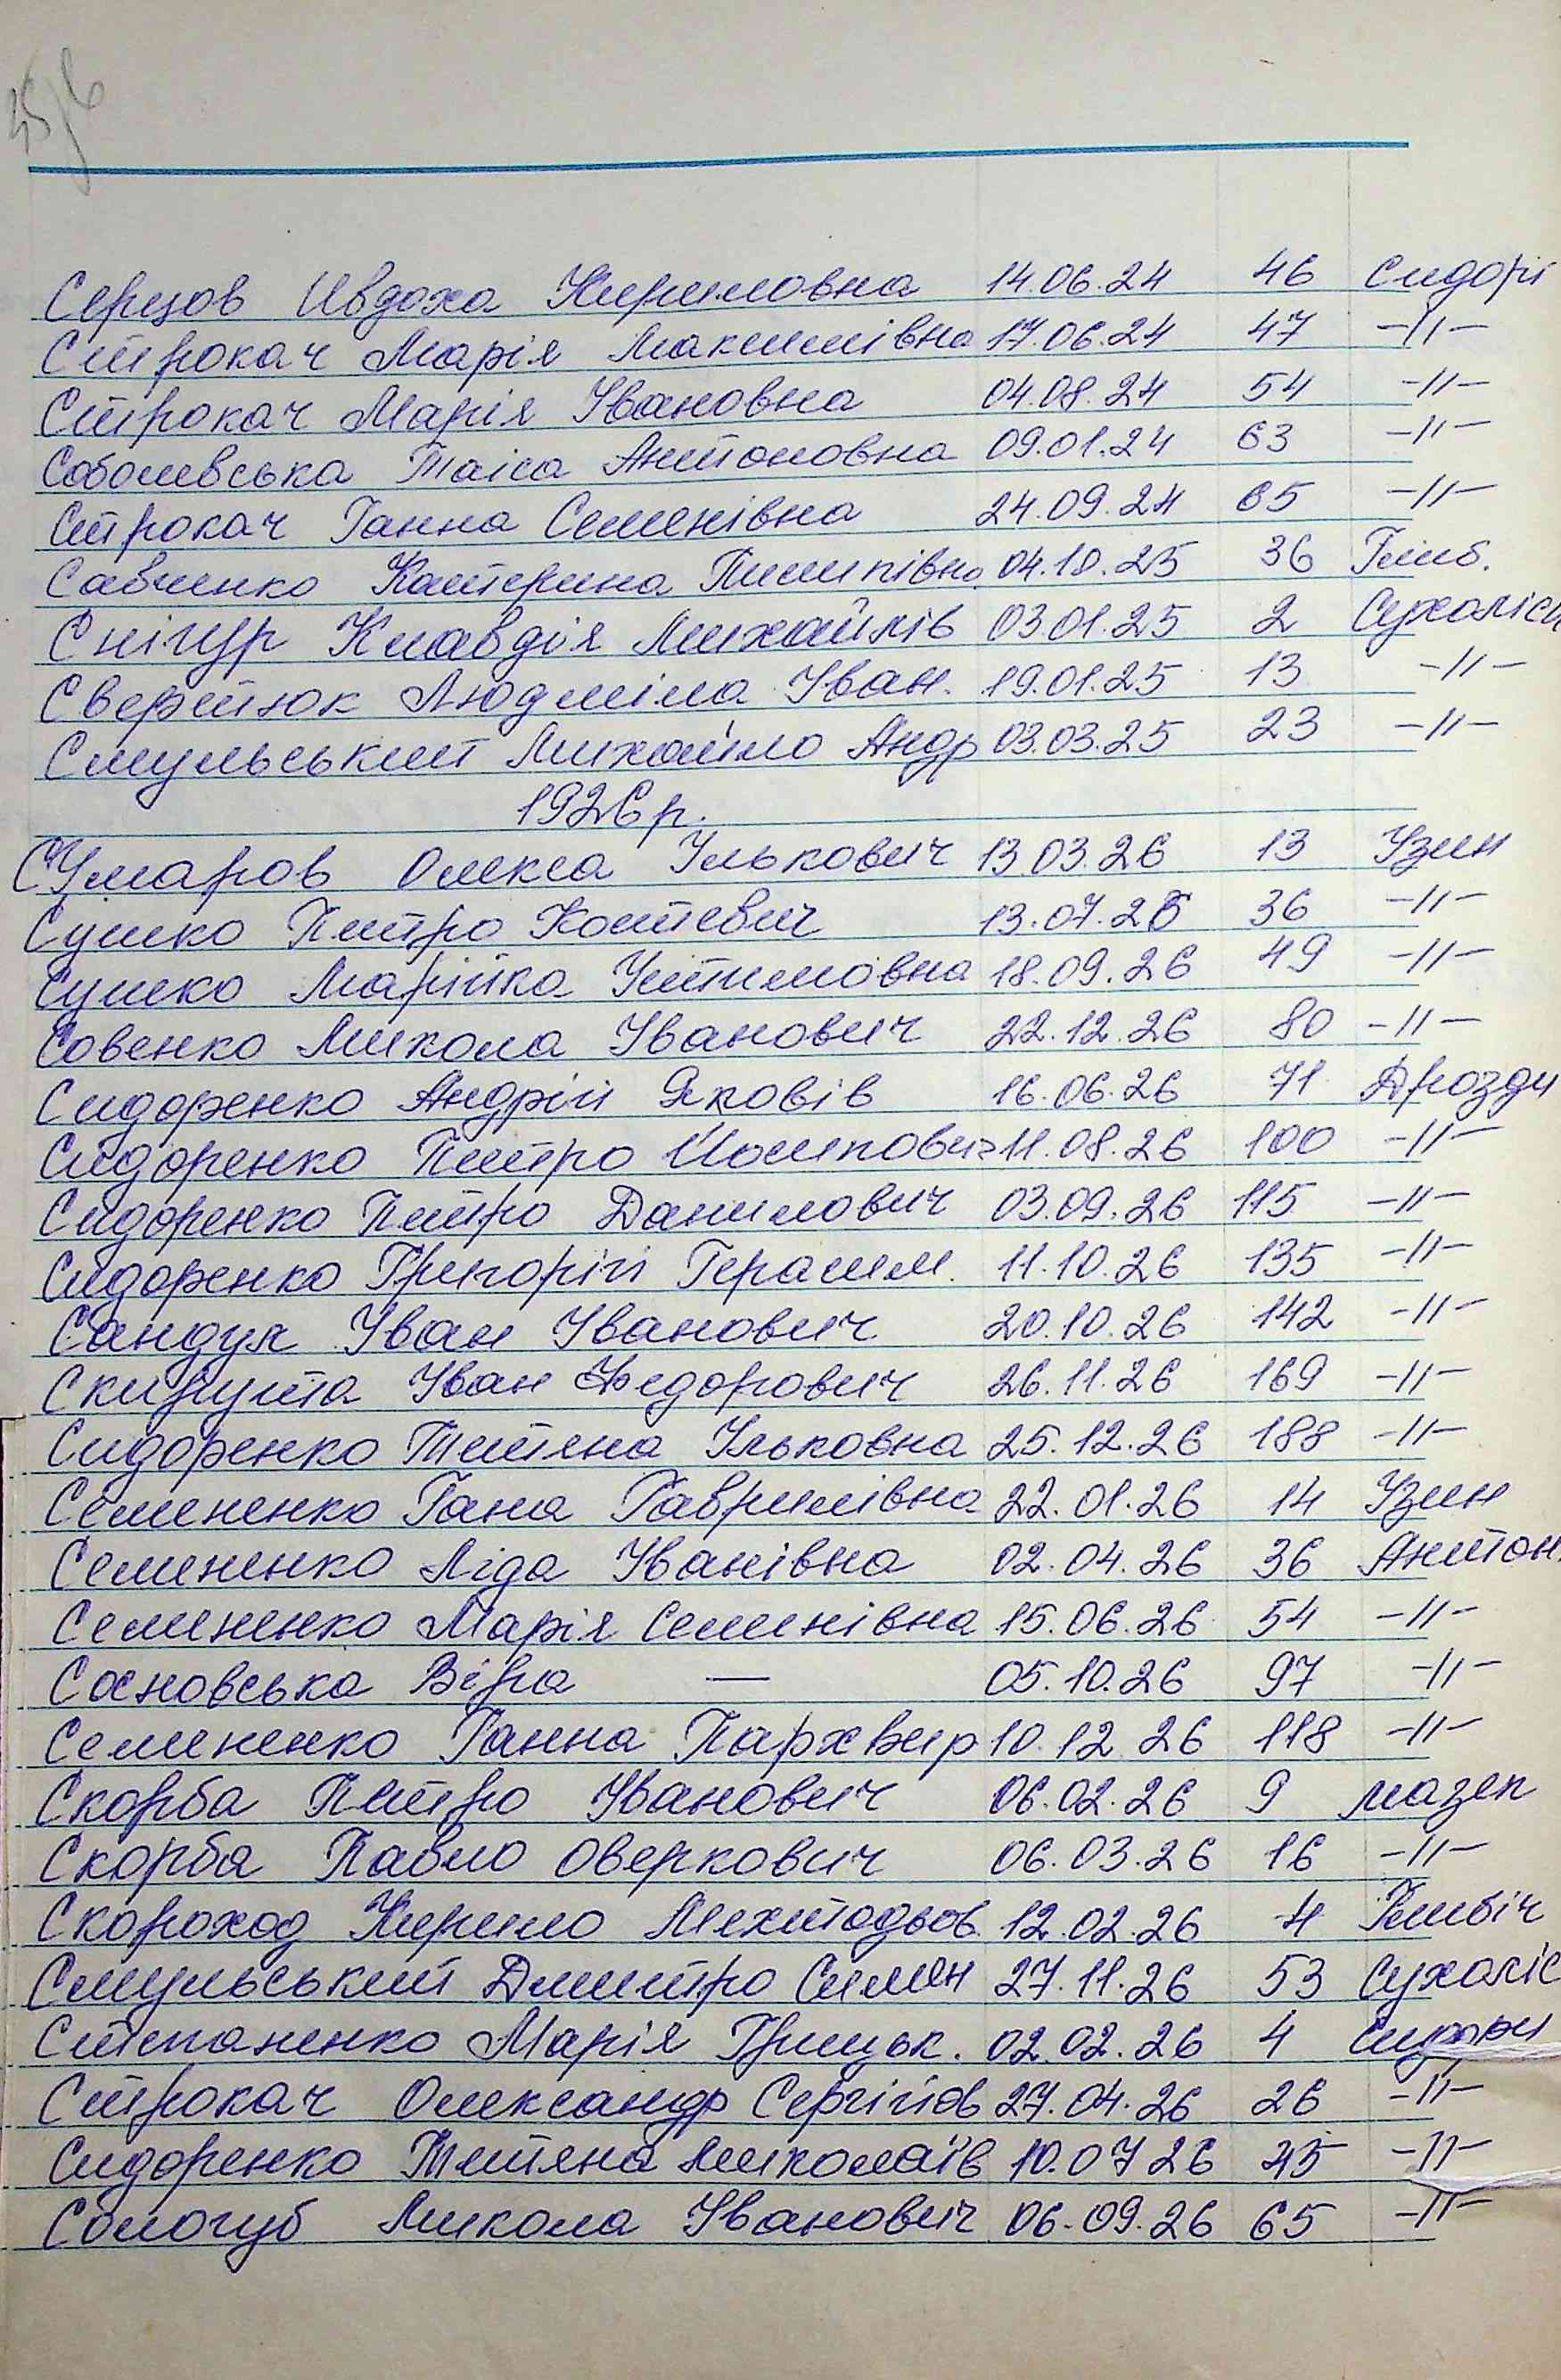 Серцов Ивдоха Кириловна 14.06.24 46 Сидорі
Строкач Марія Максимівна 17.06.24 47 -//-
Строкач Марія Івановна 04.08.24 54 -//-
Соболевська Таіса Антоновна 09.01.24 63 -//-
Строкач Ганна Семенівна 24.09.24 65 -//-
Савченко Катерина Пилипівна 04.10.25 36 Глиб.
Снігур Клавдія Михайлів 03.01.25 2 Сухоліси
Сверстюк Людміла Іван. 19.01.25 13 -//-
Смульський Михайло Андр 03.03.25 23 -//-
1926 р.
Олекса Ількович 13.03.26 13 Узин
Сушко Петро Костевич 13.07.26 36 -//-
Сушко Марійка Устимовна 18.09.26 49 -//-
Совенко Микола Іванович 22.12.26 80 -//-
Сидоренко Андрій Яковів 16.06.26 71 Дрозди
Сидоренко Петро Йосипович 11.08.26 100 -//-
Сидоренко Петро Данилович 03.09.26 115 -//-
Сидоренко Григорій Герасим. 11.10.26 135 -//-
Сандул Іван Іванович 20.10.26 142 -//-
Скирута Іван Федорович 26.11.26 169 -//-
Сидоренко Тетяна Ільковна 25.12.26 188 -//-
Семененко Гана Гаврилівна 22.01.26 14 Узин
Семененко Ліда Іванівна 02.04.26 36 Антон.
Семененко Марія Семенівна 15.06.26 54 -//-
Сосновська Віра — 05.10.26 97 -//-
Семененко Ганна Пархвир 10.12.26 118 -//-
Скорба Петро Іванович 06.02.26 9 мазеп
Скорба Павло Оверкович 06.03.26 16 -//-
Скороход Кирило Мехтодьов. 12.02.26 4 Глибіч
Смульський Дмитро Симен 27.11.26 53 Сухоліс
Степаненко Марія Грицьк. 02.02.26 4 Сидори
Строкач Олександр Сергійов 27.04.26 26 -//-
Сидоренко Тетяна Миколаїв 10.07.26 45 -//-
Сологуб Микола Іванович 06.09.26 65 -//-